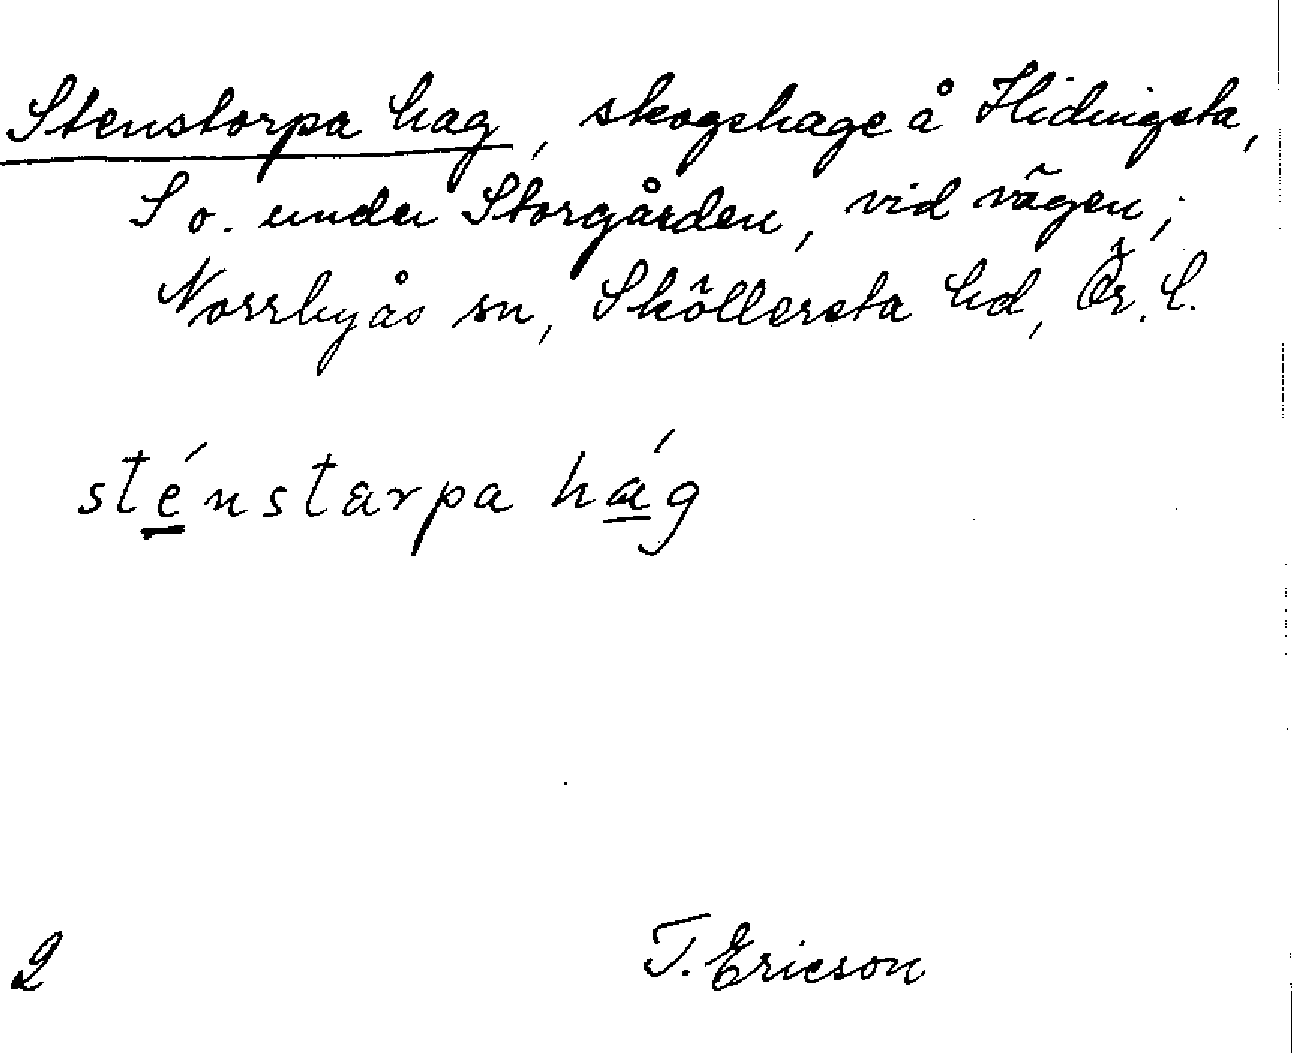 Stenstorpa hag, skogshage å Hidingsta,
So. under Storgården, vid vägen;
Norrbyås sn, Sköllersta hd, Ör. l.
sténstarpa hág
2
T. Ericson